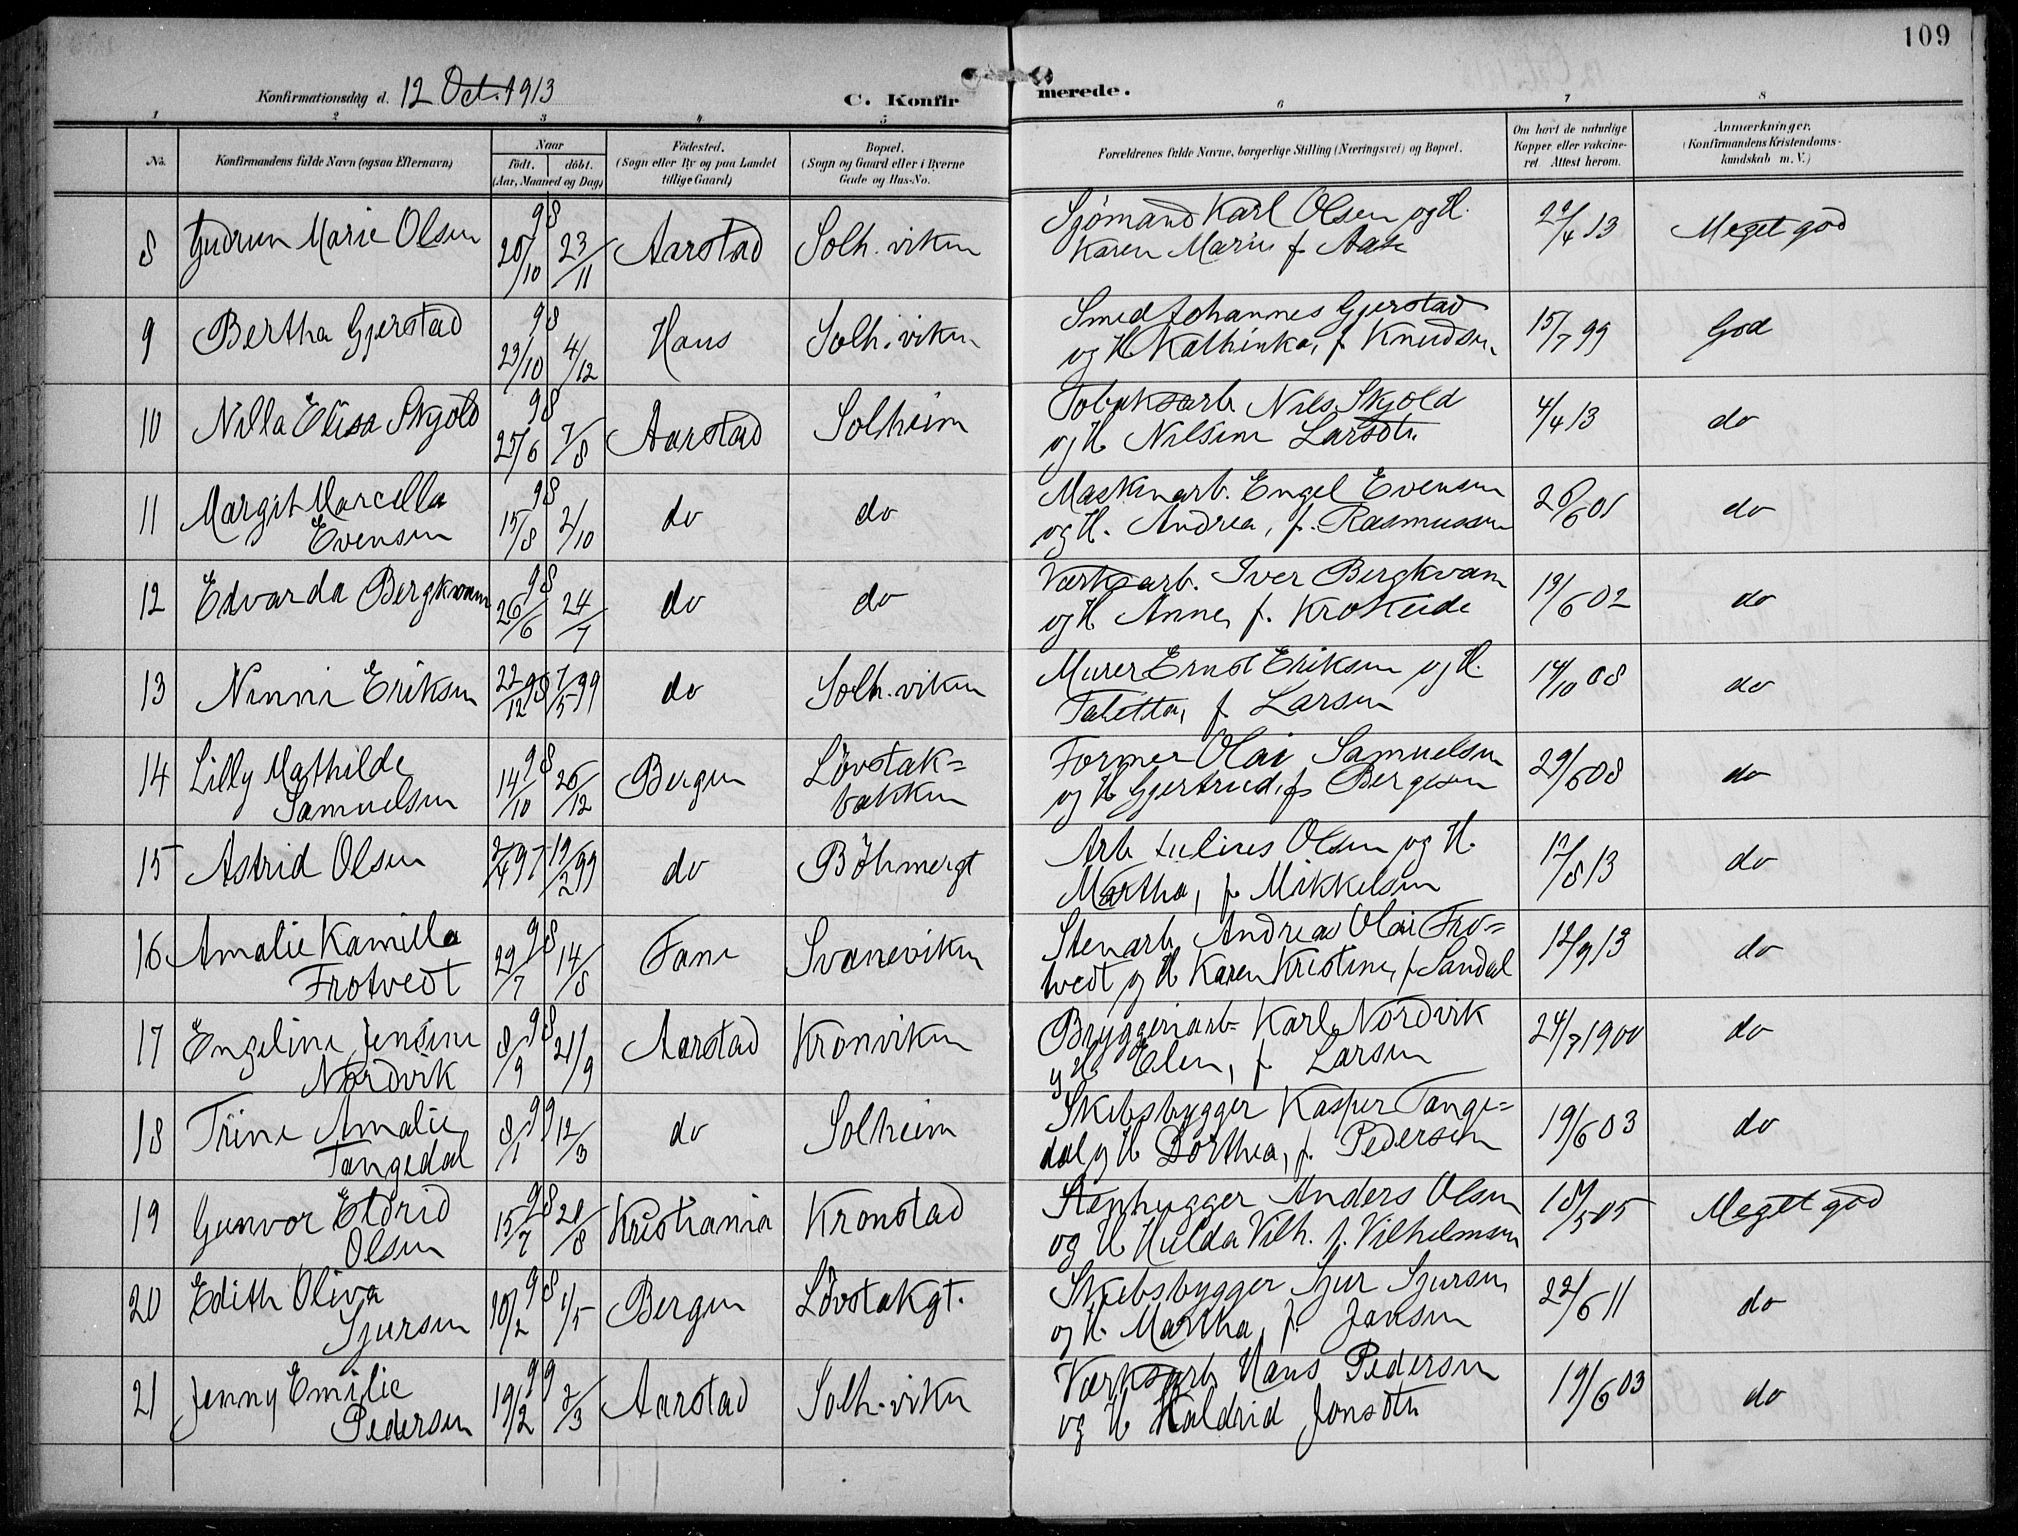 109
Konfirmationsdag d. 12 Oct. 1913 C. Konfirmerede.
1 2 3 4 5 6 7 8
No. Konfirmandens fulde Navn (ogsaa Efternavn) Naar født. døbt. (Aar, Maaned og Dag) Fødested. (Sogn eller By og paa Landet tillige Gaard) Bopæl. (Sogn og Gaard eller i Byerne Gade og Hus-No. Forældrenes fulde Navne, borgerlige Stilling (Næringsvei) og Bopæl. Om havt de naturlige Kopper eller vaccineret Attest herom. Anmærkninger. (Konfirmandens Kristendomskundskab m. V.)
8 Gudrun Marie Olsen 98 20/10 23/11 Aarstad Solh. viken Sjømand Karl Olsen og H. Karen Marie f. Aase 22/4 13 Meget god
9 Bertha Gjerstad 98 23/10 4/12 Haus Solh. viken Smed Johannes Gjerstad og H. Kathinka, f. Knudsen 15/7 99 God
10 Nilla Elisa Skjold 98 25/6 7/8 Aarstad Solheim Tobaksarb. Nils Skjold og H. Nilsine Larsdtr. 4/4 13 do
11 Margit Marcella Evensen 98 15/8 2/10 do do Maskinarb. Engel Evensen og H. Andrea, f. Rasmussen 20/6 01 do
12 Edvarda Bergkvam 98 26/6 24/7 do do Værksarb. Iver Bergkvam og H. Anne, f. Krokeide 19/6 02 do
13 Ninni Eriksen 22/12 98 7/5 99 do Solh. viken Murer Ernst Eriksen og H. Taletta, f. Larsen 14/10 08 do
14 Lilly Mathilde Samuelsen 98 14/10 26/12 Bergen Løvstak= bakken Former Olai Samuelsen og H. Gjertrud, f. Bergesen 29/6 08 do
15 Astrid Olsen 2/4 97 19/2 99 do Bøhmergt Arb. Julius Olsen og H. Martha, f. Mikkelsen 12/8 13 do
16 Amalie Kamilla Frotvedt 98 29/7 14/8 Fane Svaneviken Stenarb. Andreas Olai Fro= tvedt og H. Karen Kristine, f. Sandal 12/9 13 do
17 Engeline Jensine Nordvik 98 8/9 21/9 Aarstad Kronviken Bryggeriarb. Karl Nordvik og H. Elen, f. Larsen 24/7 1900 do
18 Trine Amalie Tangedal 99 8/1 12/3 do Solheim Skibsbygger Kasper Tange= dal og H. Dorthea, f. Pedersen 19/6 03 do
19 Gunvor Eldrid Olsen 98 15/7 28/8 Kristiania Kronstad Stenhugger Anders Olsen og H. Hulda Vilh. f. Vilhelmsen 18/5 05 Meget god
20 Edith Oliva Sjursen 98 10/2 1/5 Bergen Løvstakgt. Skibsbygger Sjur Sjursen og H. Martha, f. Jansen 22/6 11 do
21 Jenny Emilie Pedersen 99 19/2 2/3 Aarstad Solh. viken Værksarb. Hans Pedersen og H. Haldrid Jonsdtr 19/6 03 do